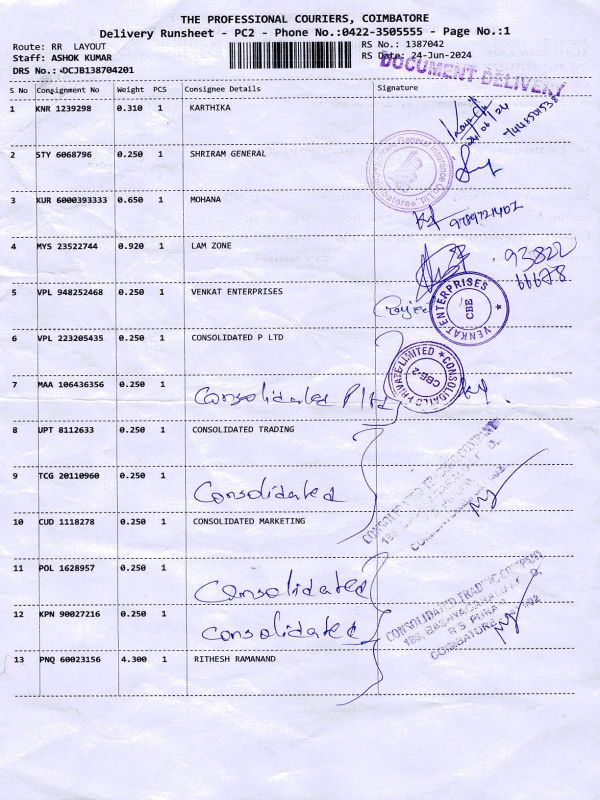 THE PROFESSIONAL COURIERS, COIMBATORE
Delivery Runsheet - PC2 - Phone No.:0422-3505555 - Page No.:1
Route: RR LAYOUT
RS No.: 1387042
Staff: ASHOK KUMAR
RS Date: 24-Jun-2024
DRS No.: DCJB138704201
DOCUMENT DELIVERY
S No Consignment No Weight PCS Consignee Details Signature
1 KNR 1239298 0.310 1 KARTHIKA
24/06/24
2 STY 6068796 0.250 1 SHRIRAM GENERAL
General Insurance
3 KUR 6000393333 0.650 1 MOHANA
9789721407
4 MYS 23522744 0.920 1 LAM ZONE
93822
66678
5 VPL 948252468 0.250 1 VENKAT ENTERPRISES
VENKAT ENTERPRISES
CBE
6 VPL 223205435 0.250 1 CONSOLIDATED P LTD
CONSOLIDATED PRIVATE LIMITED
CBE-2
7 MAA 106436356 0.250 1
Consolidated P ltd
8 UPT 8112633 0.250 1 CONSOLIDATED TRADING
9 TCG 20110960 0.250 1
Consolidated
10 CUD 1118278 0.250 1 CONSOLIDATED MARKETING
11 POL 1628957 0.250 1
Consolidated
12 KPN 90027216 0.250 1
Consolidated
CONSOLIDATED TRADING COMPANY
COIMBATORE
13 PNQ 60023156 4.300 1 RITHESH RAMANAND